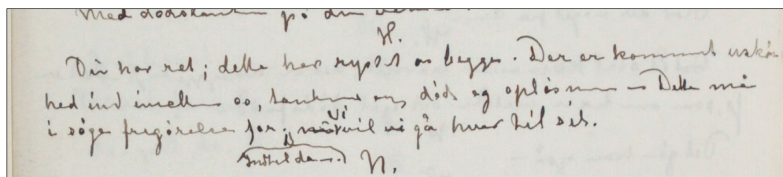 Med dødstanken på den
H.
Du har ret; dette har rystet os begge. Der er kommet uskøn
hed ind imellem os, tanken om død og opløsnin – Dette må
i søge frigørelse for; Vi vil vi gå hver til sit.
Indtil da
N.